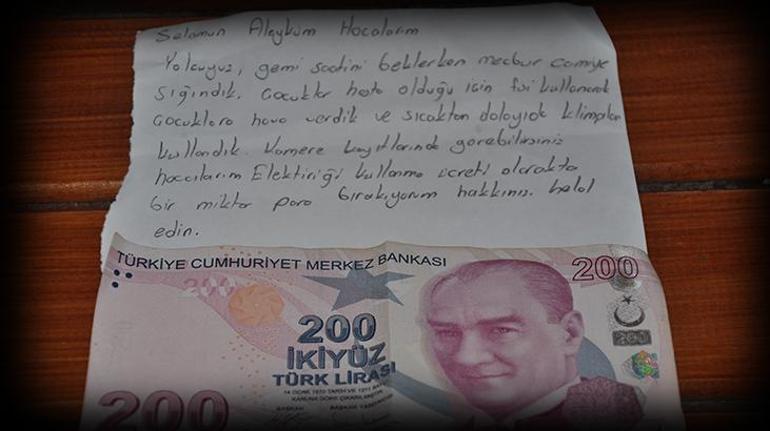 Selamun Aleyküm Hocalarım
Yolcuyuz, gemi saatini beklerken mecbur camiye
sığındık. Çocuklar hasta olduğu için fişi kullanarak
çocuklara hava verdik ve sıcaktan dolayıda klimaları
kullandık. Kamere kayıtlarında görebilirsiniz
hocalarım Elektiriği kullanma ücreti olarakta
bir miktar para bırakıyorum hakkınızı helal
edin.
TÜRKİYE CUMHURİYET MERKEZ BANKASI
200
200
200
İKİYÜZ
TÜRK LİRASI
14 OCAK 1970 TARİH VE 1211
KANUNA GÖRE ÇIKARILMIŞTIR
BAŞKAN
200
200